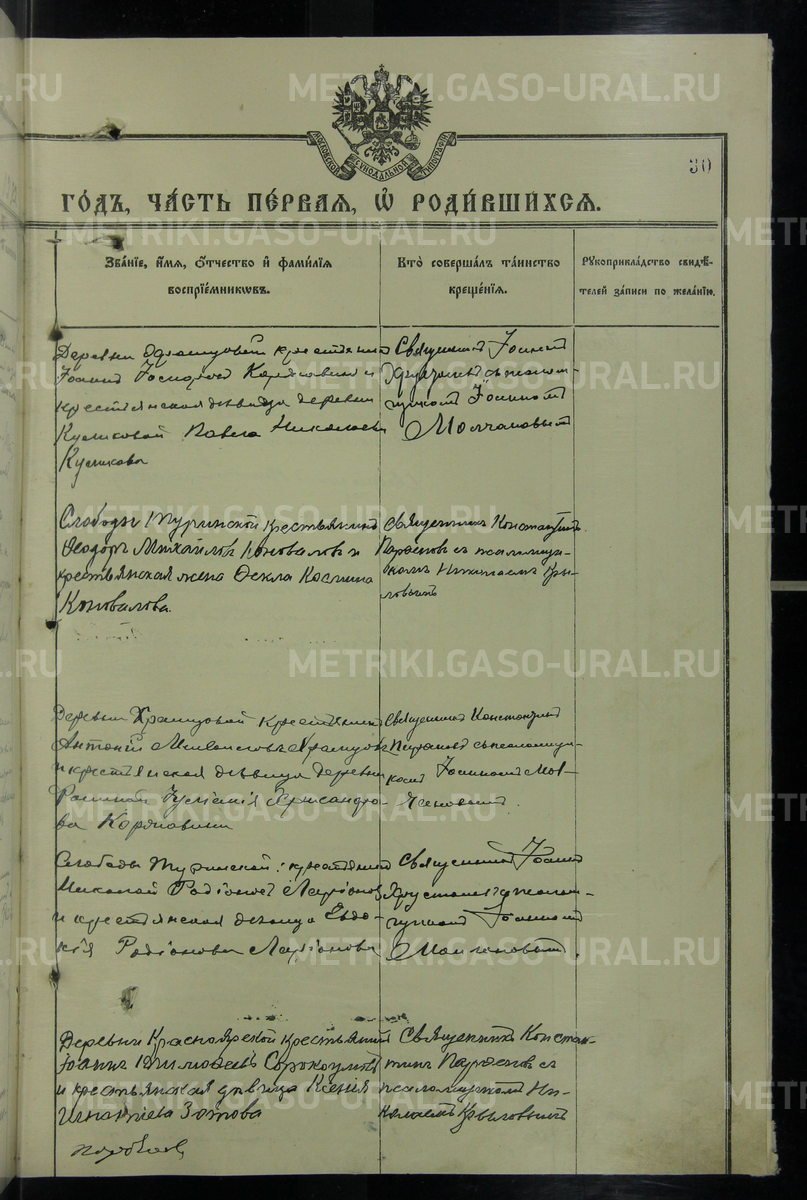 METRIKI.GASO-URAL.RU
МОСКОВСКОЙ СѴНОДАЛЬНОЙ ТИПОГРАФІИ
30
ГО́ДЪ, ЧА́СТЬ ПЕ́РВАЯ, Ѡ҆ РОДИ́ВШИХСЯ.
Зва́нїе, и҆́мя, ѻ҆́тчество и҆ фами́лїя
воспрїе́мникѡвъ.
Кто̀ соверша́лъ та́инство
креще́нїя.
Рꙋкоприкла́дство свидѣ́-
телей за́писи по жела́нїю.
Деревни крестьянинъ
Іоаннъ и
крестьянская дѣвица деревни
Куликовой Павла Николаева
Куликова
Священникъ Іоаннъ
съ псалом-
щикомъ Іоанномъ
Молчановымъ
Слободы Туринской крестьянинъ
Ѳеодоръ Михайловъ Коноваловъ и
крестьянская жена Ѳекла Косьмина
Коновалова.
Священникъ Константинъ
Парѳеновъ съ псаломщи-
комъ Николаемъ Кры-
ловымъ
Деревни Храмцовой крестьянинъ
Антоній Храмцовъ
и крестьянская дѣвица деревни
Хрисанѳо-
ва Корякина
Священникъ Константинъ
Парѳеновъ съ псаломщи-
комъ Іоанномъ Мол-
чановымъ.
Слободы Туринской крестьянинъ
Николай Родіоновъ Ларіоновъ
и крестьянская дѣвица Евдо-
кія Родіонова Ларіонова
Священникъ Іоаннъ
съ псалом-
щикомъ Іоанномъ
Молчановымъ.
Деревни Красноярской крестьянинъ
Іоаннъ Тимоѳеевъ Сорокоумовъ
и крестьянская дѣвица Ксенія
Игнатіева Зотова
Священникъ Констан-
тинъ Парѳеновъ съ
псаломщикомъ Ни-
колаемъ Крыловымъ